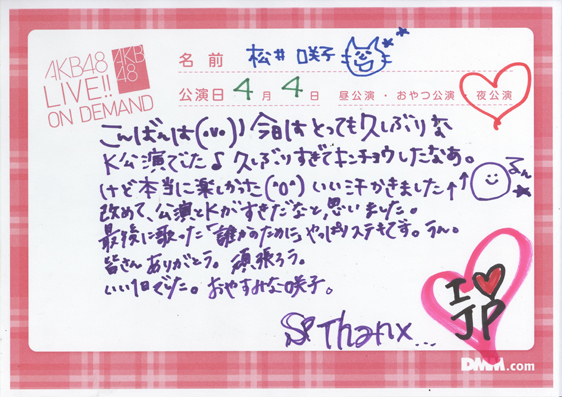 AKB48
LIVE!!
ON DEMAND
AKB
48
名前 松井咲子
公演日 4月4日 昼公演・おやつ公演・夜公演
こんばんは(・∪・)ノ今日はとっても久しぶりな
K公演でした♪久しぶりすぎてキンチョウしたなあ。
けど本当に楽しかった(^o^)いい汗かきました↑↑
るん
改めて、公演とKがすきだなと思いました。
最後に歌った「誰かのために」やっぱりステキです。うん。
皆さんありがとう。頑張ろう。
いい1日でした。おやすみな咲子。
Thanx...
I ♥
JP
DMM.com